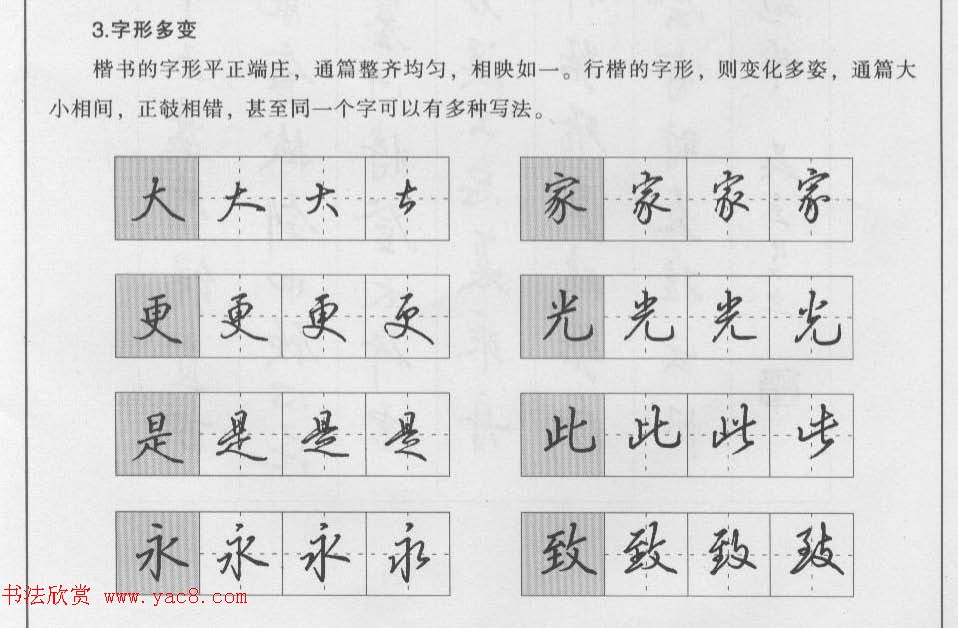 3.字形多变
楷书的字形平正端庄，通篇整齐均匀，相映如一。行楷的字形，则变化多姿，通篇大
小相间，正攲相错，甚至同一个字可以有多种写法。
大 大 大 大 家 家 家 家
更 更 更 更 光 光 光 光
是 是 是 是 此 此 此 此
永 永 永 永 致 致 致 致
书法欣赏 www.yac8.com